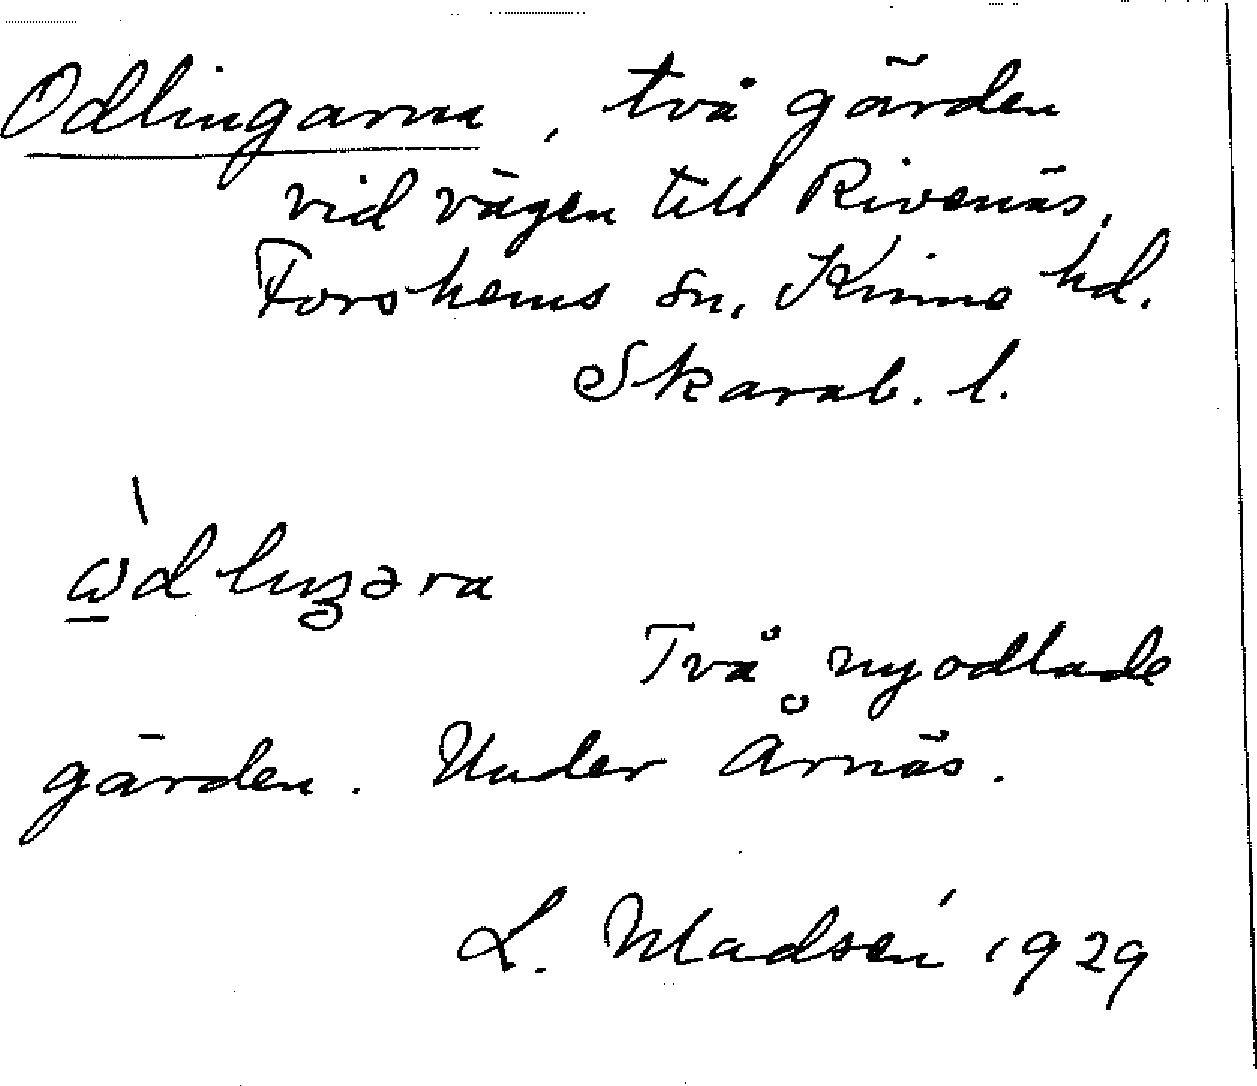 Odlingarna, två gärden
vid vägen till Rivenäs,
Forshems sn, Kinne hd.
Skarab. l.
Två nyodlade
gärden. Under Årnäs.
L. Madsén 1929